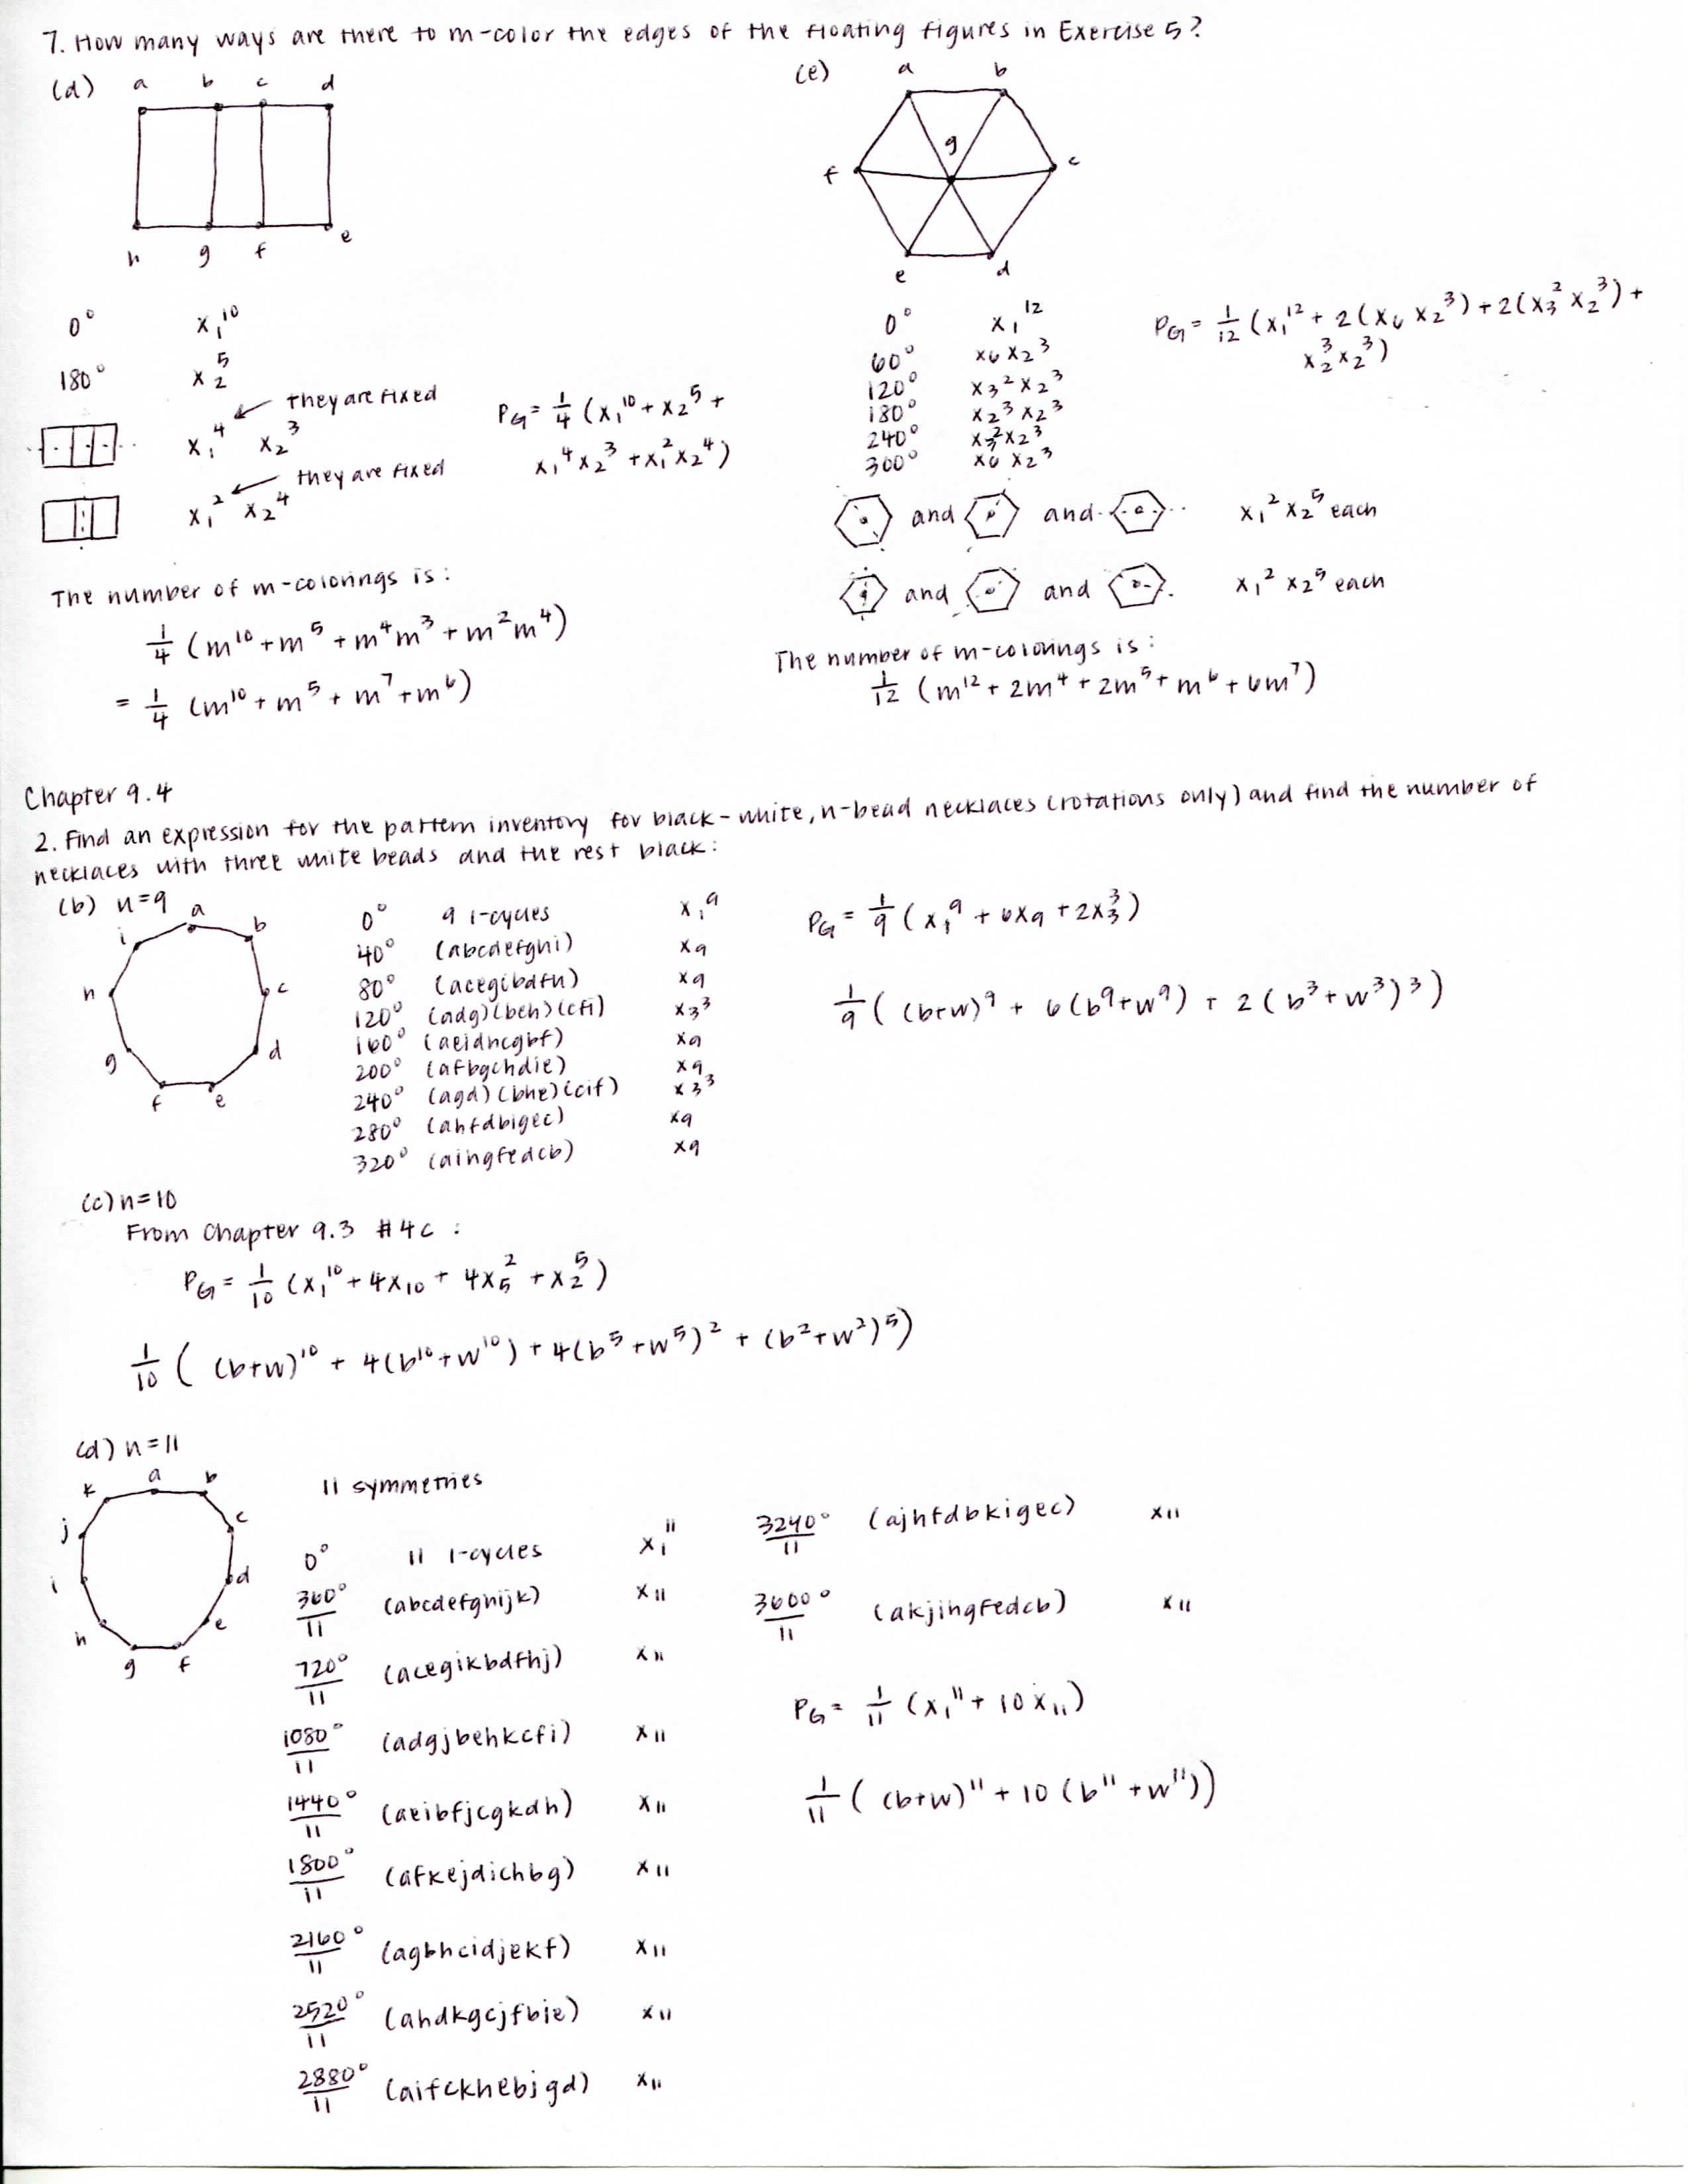 7. How many ways are there to m-color the edges of the floating figures in Exercise 5?
(d) a b c d
h g f e
0° x₁¹⁰
180° x₂⁵
x₁⁴ x₂³ ← they are fixed
x₁² x₂⁴ ← they are fixed
P_G = 1/4 (x₁¹⁰ + x₂⁵ +
x₁⁴x₂³ + x₁²x₂⁴)
The number of m-colorings is:
1/4 (m¹⁰ + m⁵ + m⁴m³ + m²m⁴)
= 1/4 (m¹⁰ + m⁵ + m⁷ + m⁶)
(e) a b
f g c
e d
0° x₁¹²
60° x₆x₂³
120° x₃²x₂³
180° x₂³x₂³
240° x₃²x₂³
300° x₆x₂³
P_G = 1/12 (x₁¹² + 2(x₆x₂³) + 2(x₃²x₂³) +
x₂³x₂³)
and and x₁²x₂⁵ each
and and x₁²x₂⁵ each
The number of m-colorings is:
1/12 (m¹² + 2m⁴ + 2m⁵ + m⁶ + 6m⁷)
Chapter 9.4
2. Find an expression for the pattern inventory for black-white, n-bead necklaces (rotations only) and find the number of
necklaces with three white beads and the rest black:
(b) n=9
a b c d e f g h i
0° 9 1-cycles x₁⁹
40° (abcdefghi) x₉
80° (acegibdfh) x₉
120° (adg)(beh)(cfi) x₃³
160° (aeidhcgbf) x₉
200° (afbgchdie) x₉
240° (agd)(bhe)(cif) x₃³
280° (ahfdbigec) x₉
320° (aihgfedcb) x₉
P_G = 1/9 (x₁⁹ + 6x₉ + 2x₃³)
1/9 ((b+w)⁹ + 6(b⁹+w⁹) + 2(b³+w³)³)
(c) n=10
From Chapter 9.3 #4c:
P_G = 1/10 (x₁¹⁰ + 4x₁₀ + 4x₅² + x₂⁵)
1/10 ((b+w)¹⁰ + 4(b¹⁰+w¹⁰) + 4(b⁵+w⁵)² + (b²+w²)⁵)
(d) n=11
a b c d e f g h i j k
11 symmetries
0° 11 1-cycles x₁¹¹
360°/11 (abcdefghijk) x₁₁
720°/11 (acegikbdfhj) x₁₁
1080°/11 (adgjbehkcfi) x₁₁
1440°/11 (aeibfjcgkdh) x₁₁
1800°/11 (afkejdichbg) x₁₁
2160°/11 (agbhcidjekf) x₁₁
2520°/11 (ahdkgcjfbie) x₁₁
2880°/11 (aifckhebjgd) x₁₁
3240°/11 (ajhfdbkigec) x₁₁
3600°/11 (akjihgfedcb) x₁₁
P_G = 1/11 (x₁¹¹ + 10x₁₁)
1/11 ((b+w)¹¹ + 10(b¹¹+w¹¹))